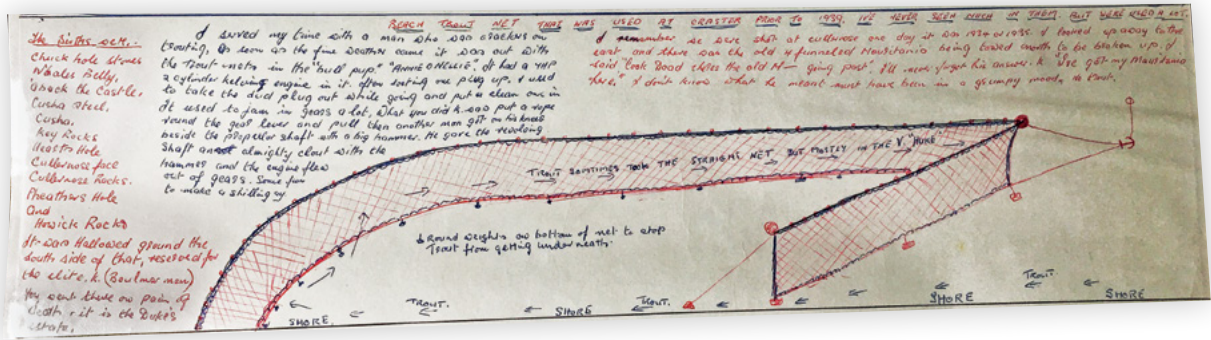 BEACH TROUT NET THAT WAS USED AT CRASTER PRIOR TO 1939. I'VE NEVER SEEN MUCH IN THEM. BUT WERE USED A LOT.
The Births were:-
Chuck hole stones
Whales Belly.
aback the Castle.
Cusha steel.
Cusha.
Key Rocks
Hearts Hole
Cullernose face
Cullernose Rocks.
Pheathers Hole
And
Howick Rocks
It was Hallowed ground the
South side of that, reserved for
the elite. k. (Boulmer men)
You went there on pain of
death. it is the Duke's
estate.
I served my time with a man who was crackers on
trouting. As soon as the fine weather came it was out with
the trout nets in the "bull pup." "ANNIE ONELLIE". It had a 7HP
2 cylinder kelving engine in it. often sooting one plug up. I used
to take the dud plug out while going and put a clean one in
It used to jam in gears a lot. What you did k was put a rope
round the gear lever and pull then another man got on his knees
beside the propeller shaft with a big hammer. He gave the revolving
shaft an almighty clout with the
hammer and the engine flew
out of gears. Some fun
to make a shilling
I remember we were shot at cullernose one day it was 1934 or 1935. I looked up away to the
east and there was the old 4 funneled Mauritania being towed north to be broken up. I
said "look Dood there's the old M— going past". I'll never forget his answer. k "I've got my Mauritania
here." I don't know what he meant must have been in a grumpy mood, no trout.
TROUT SOMETIMES TOOK THE STRAIGHT NET BUT MOSTLY IN THE V. "HUKE"
Round weights on bottom of net to stop
Trout from getting underneath.
SHORE.
TROUT.
SHORE
TROUT.
SHORE
TROUT.
SHORE